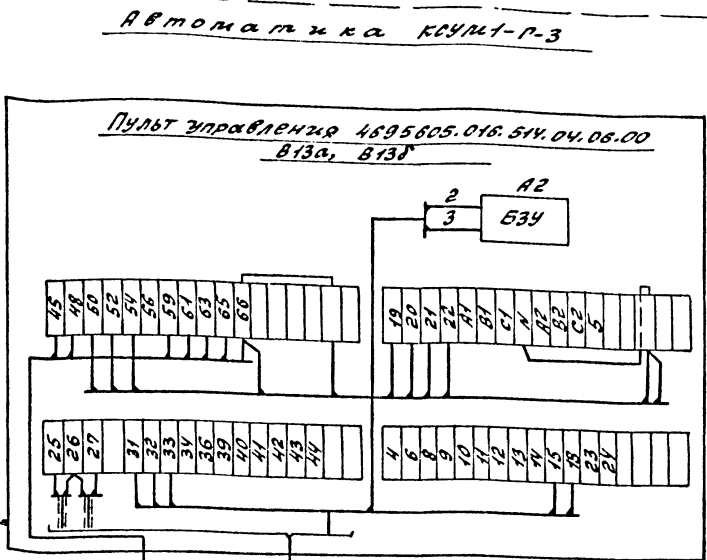 Автоматика КСУМ1-Г-3
Пульт управления 4695605.016.514.04.06.00
В13а, В13б
А2
2
3 БЗУ
45 48 50 52 54 56 59 61 63 65 66
19 20 21 22 А1 В1 С1 N А2 В2 С2 5
25 26 27 31 32 33 34 36 39 40 41 42 43 44
4 6 8 9 10 11 12 13 14 15 18 23 24